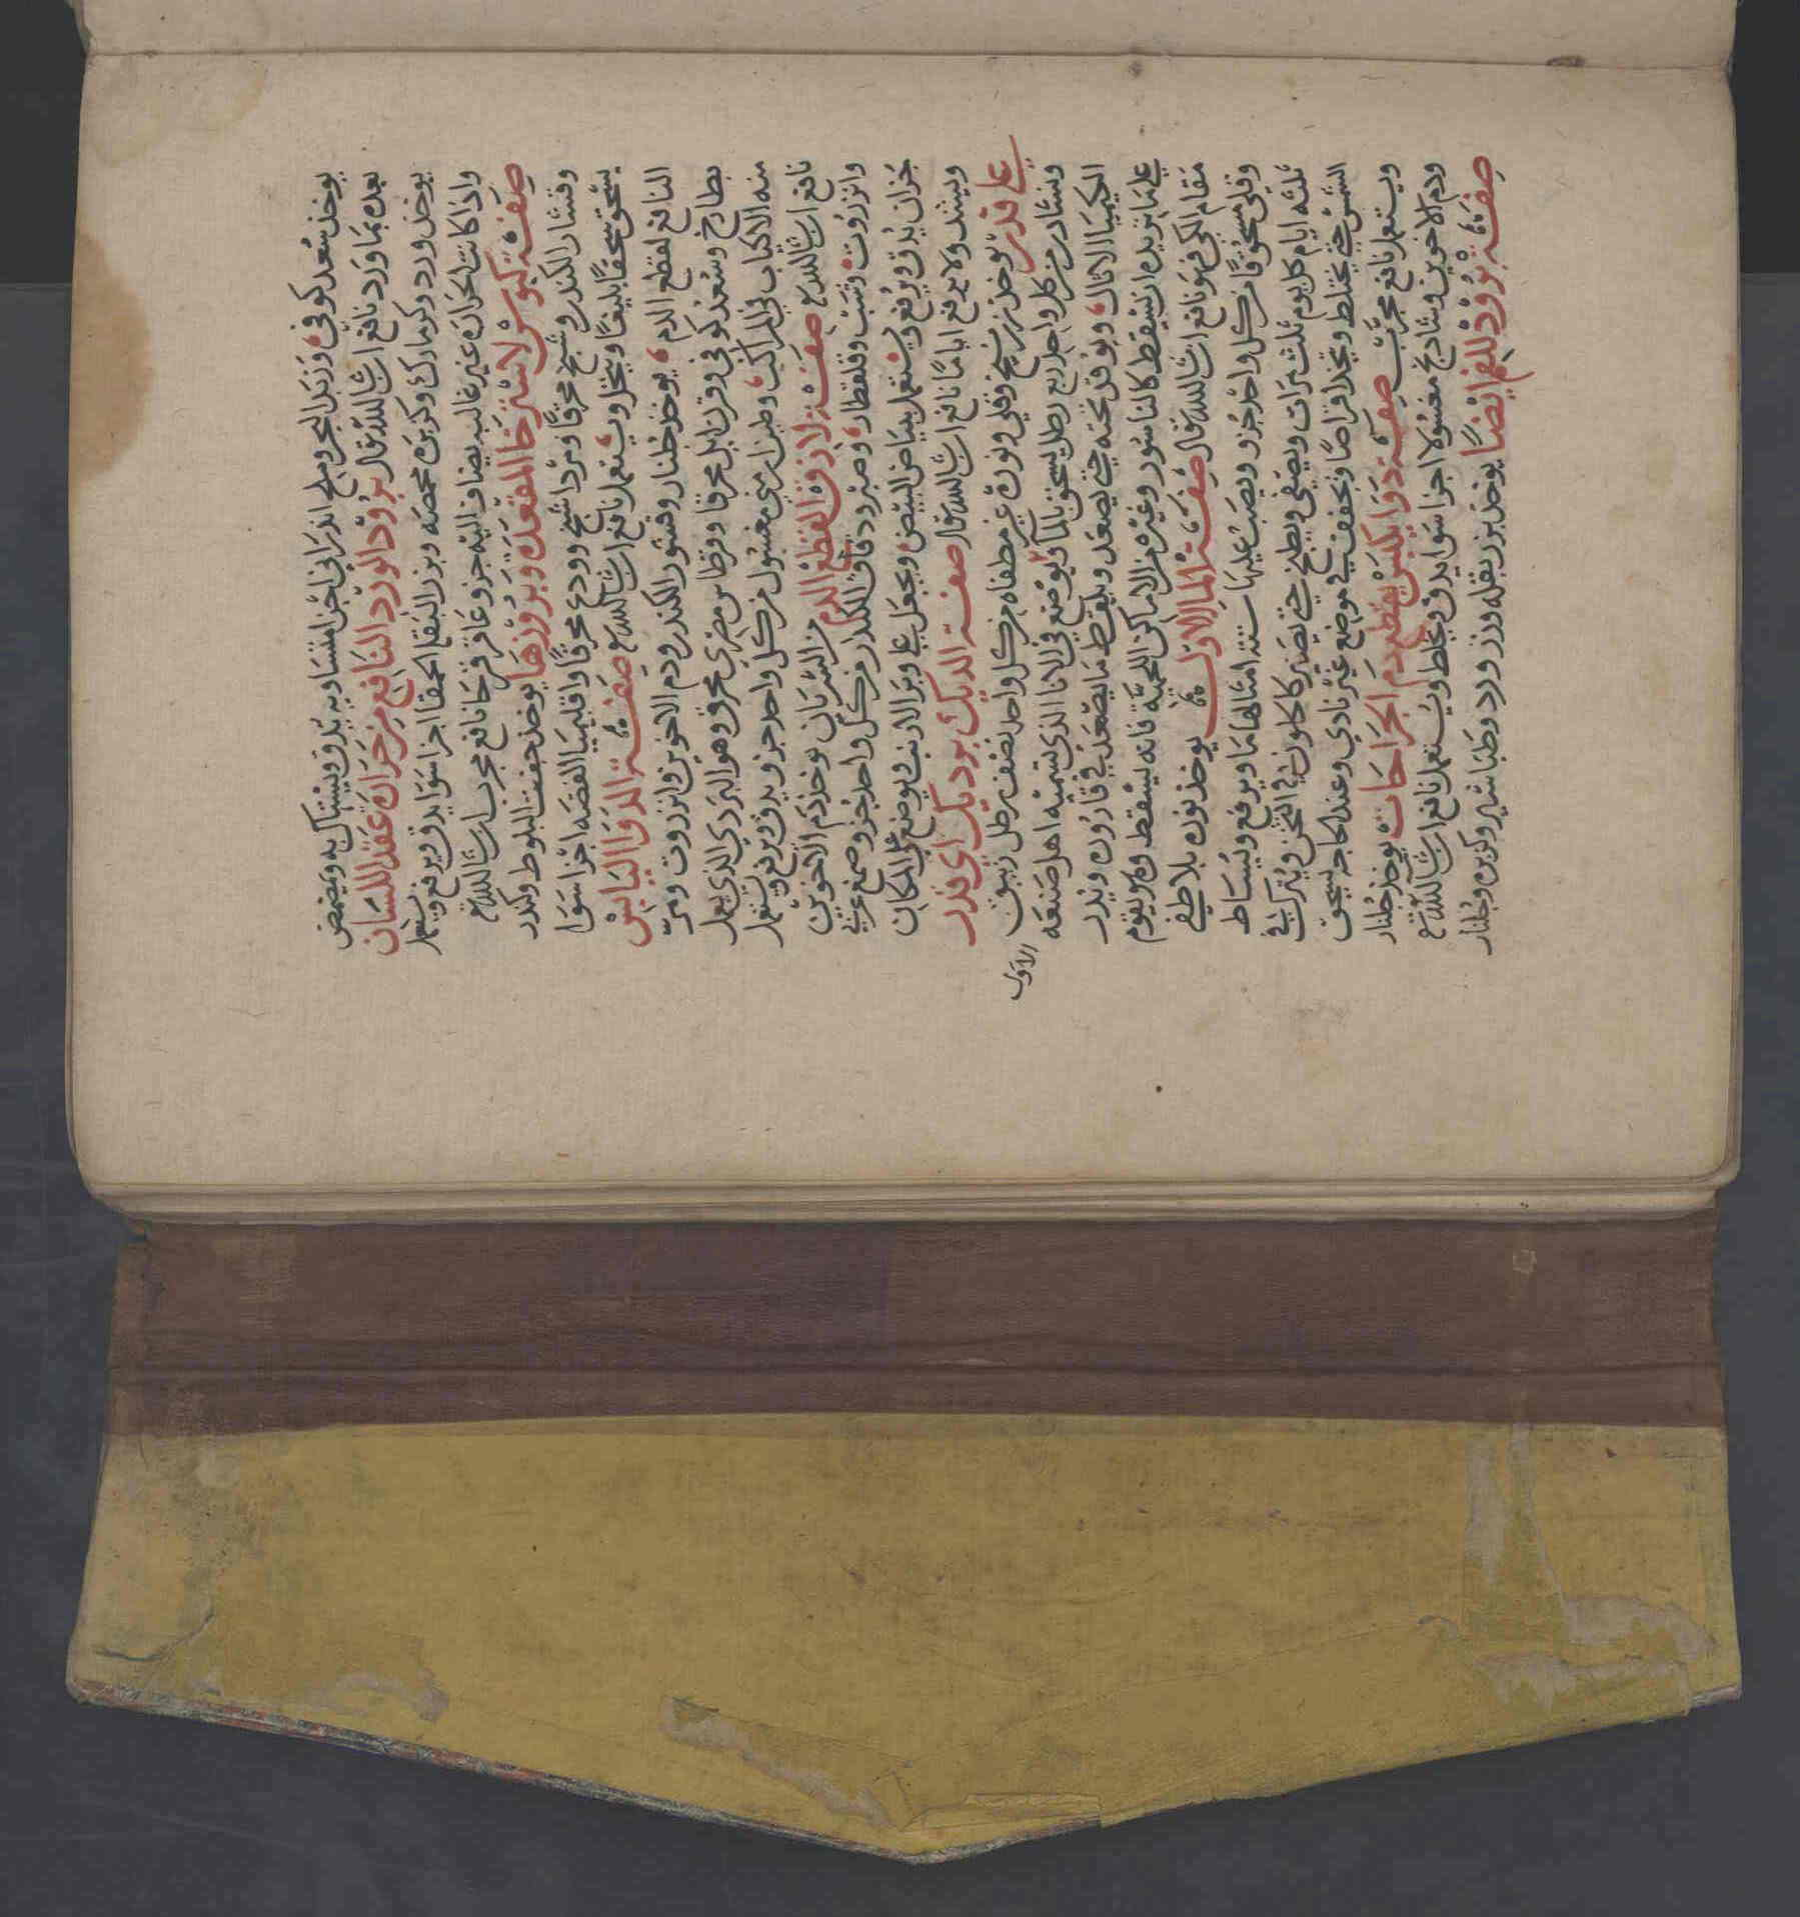 يوخذ سعد كوفي وزبد البحر وملح اندراني اجزا متساويه يدق ويستاك به ويتمضمض
بعده بماورد نافع ان شا الله تعالى برود الورد النافع من حرارة عقد اللسان
يوخذ ورد وكزمازك وكزبره محمصه وبزر البقله الحمقا اجزا سوا يدق ويرفع ويستعمل
واذا كانت الحرارة غير غالبه يضاف اليه جزو عاقر قرحا نافع مجرب ان شا الله تع
صفة كبوس لاسترخا المقعدة وبروزها يوخذ جفت البلوط وكندر
وقشار الكندر وشيح محرقا ومرداسنج وودع محرقا واقليميا الفضه اجزا سوا
يسحق سحقا بليغا وينخل ويستعمل نافع ان شا الله تع صفة الدوا اليابس
النافع لقطع الدم يوخذ جلنار وقشور الكندر ودم الاخوين وانزروت ومر
وسعد كوفي وقرن ابل محرقا وقرطاس مصري محرق وهو البردي الذي يعمل
منه في المراكب وطين ارمني مغسول من كل واحد جزو يدق ويرفع ويستعمل
نافع ان شا الله تع صفة لازوق لقطع الدم من الشريان يوخذ دم الاخوين
وانزروت وشب وقلقطار وصبر ودقاق الكندر من كل واحد جزو وصمغ عربي
جزان يدق ويرفع ويستعمل ببياض البيض ويجعل علي وبر الارنب ويوضع علي المكان
ويشد ولا يرفع اياما نافع ان شا الله تعالى صفة الديك برديك اي قدر
علي قدر يوخذ زرنيخ وقلي ونورة غير مطفاه من كل واحد نصف رطل زيبق
ونشادر من كل واحد ربع رطل يسحق بالما ويوضع في الانا الذي تسميه اهل صنعه
الكيميا الاثال ويوقد تحته حتي يصعد ويلقط ما يصعد في قارورة ويذر
علي ما تريد ان يسقط كالناسور وغيره من الاماكن اللحمية فانه يسقط وهو يقوم
مقام الكي فهو نافع ان شا الله تعالى صفة الما الاول يوخذ نوره بلا طفي
وقلي مسحوقا من كل واحد جزو ويصب عليها ستة امثالها ما ويرفع ويساط
ثلثه ايام كل يوم ثلث مرات ويصفي ويطبخ حتي يصير في الثخن ويترك في
الشمس حتي يختلط ويتخذ اقراصا ويجفف في موضع غير نادي وعند الحاجه يسحق
ويستعمل نافع مجرب صفة دوا يكبس يقطع دم الجراحات يوخذ جلنار
ودم الاخوين وشادنج مغسولا اجزا سوا يدق ويخلط ويستعمل نافع ان شا الله تع
صفة برود للفم ايضا يوخذ بزر بقله وزر ورد وطباشير وكزبره وجلنار
الاول